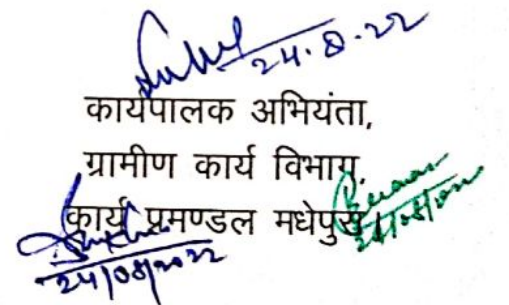 24.8.22
कार्यपालक अभियंता,
ग्रामीण कार्य विभाग,
कार्य प्रमण्डल मधेपुरा
24/08/2022
24/08/22